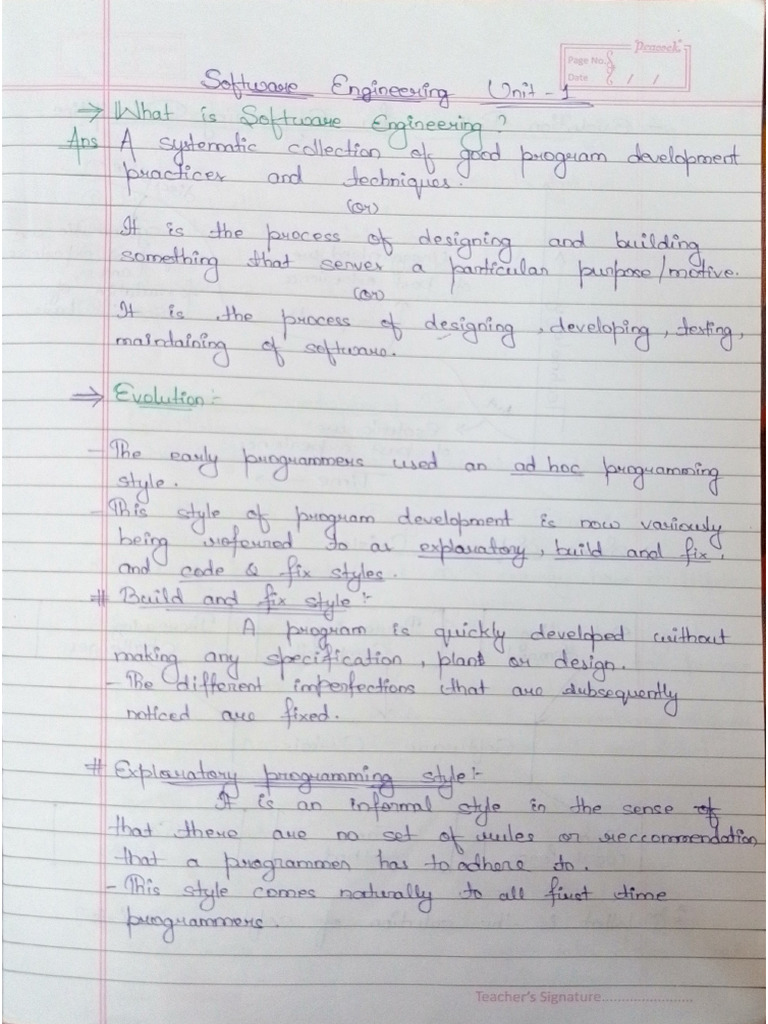 Peacock
Page No.
Date / /
Software Engineering Unit - 1
→ What is Software Engineering?
Ans A systematic collection of good program development
practices and techniques.
(or)
It is the process of designing and building
something that serves a particular purpose/motive.
(or)
It is the process of designing, developing, testing,
maintaining of software.
⇒ Evolution :-
- The early programmers used an ad hoc programming
style.
- This style of program development is now variously
being referred to as explanatory, build and fix,
and code & fix styles.
# Build and fix style :-
A program is quickly developed without
making any specification, plans or design.
- The different imperfections that are subsequently
noticed are fixed.
# Explanatory programming style :-
It is an informal style in the sense of
that there are no set of rules or reccommendation
that a programmer has to adhere to.
- This style comes naturally to all first time
programmers.
Teacher's Signature........................